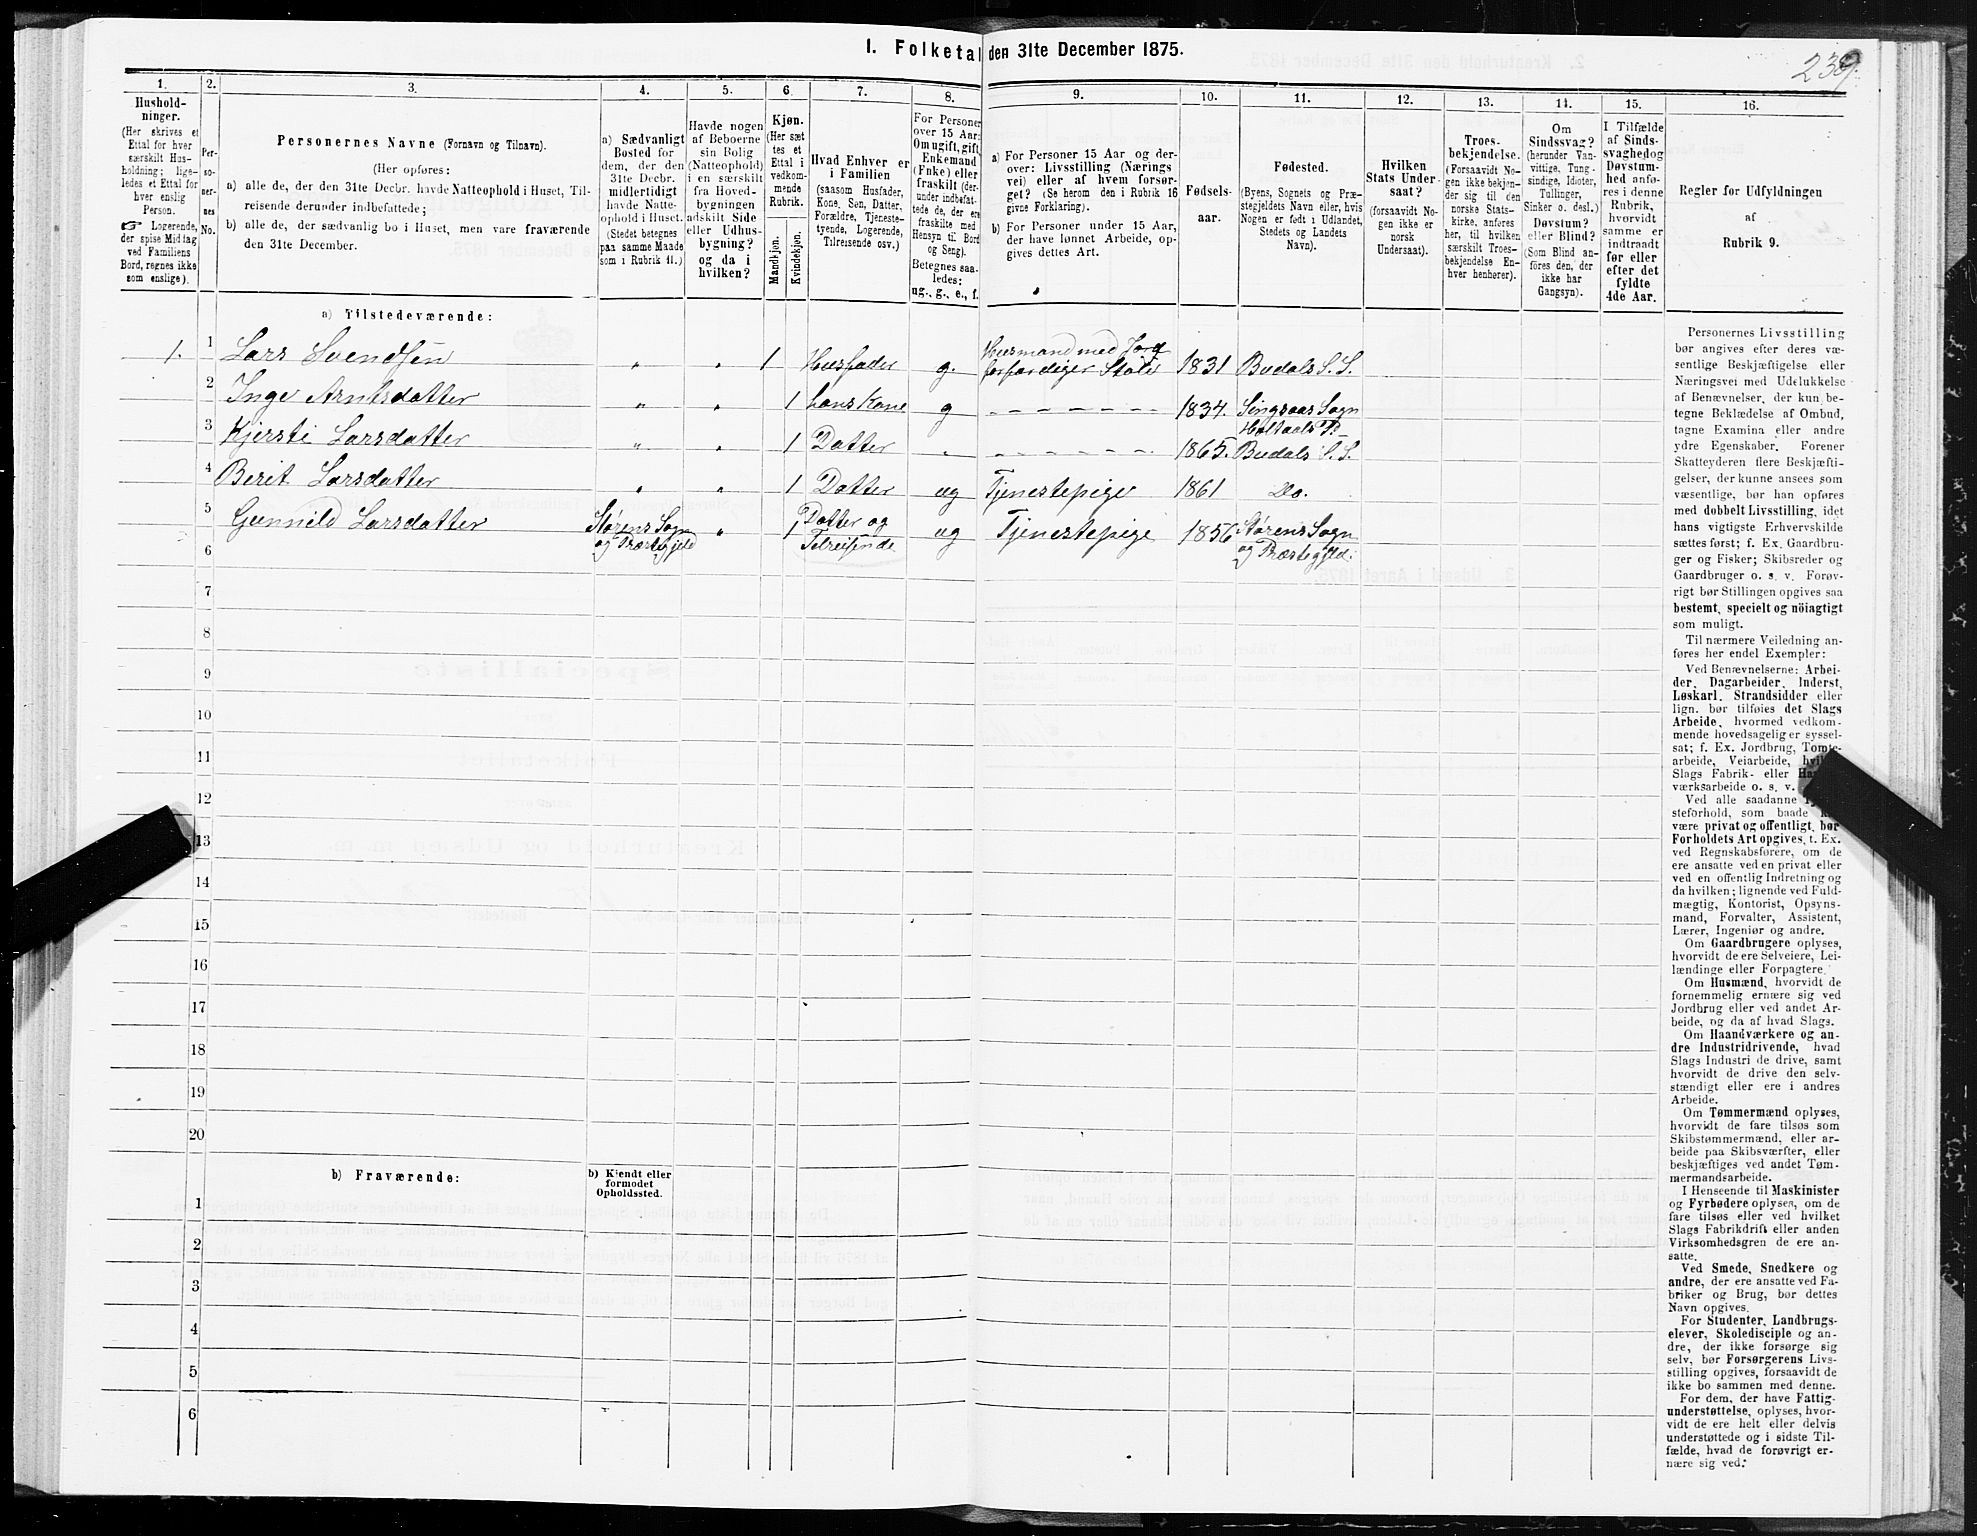 I. Folketal den 31te December 1875.
239.
1.
Hushold-
ninger.
(Her skrives et
Ettal for hver
særskilt Hus-
holdning; lige-
ledes et Ettal for
hver enslig
Person.
☞ Logerende,
der spise Middag
ved Familiens
Bord, regnes ikke
som enslige).
2.
Per-
so-
ner-
nes
No.
3.
Personernes Navne (Fornavn og Tilnavn).
(Her opføres:
a) alle de, der den 31te Decbr. havde Natteophold i Huset, Til-
reisende derunder indbefattede;
b) alle de, der sædvanlig bo i Huset, men vare fraværende
den 31te December.
4.
a) Sædvanligt
Bosted for
dem, der den
31te Decbr.
midlertidigt
havde Natte-
ophold i Huset.
(Stedet betegnes
paa samme Maade
som i Rubrik 11.)
5.
Havde nogen
af Beboerne
sin Bolig
(Natteophold)
i en særskilt
fra Hoved-
bygningen
adskilt Side
eller Udhus-
bygning?
og da i
hvilken?
6.
Kjøn.
(Her sæt
tes et
Ettal i
vedkom-
mende
Rubrik.
Mandkjøn.
Kvindekjøn.
7.
Hvad Enhver er
i Familien
(saasom Husfader,
Kone, Søn, Datter,
Forældre, Tjeneste-
tyende, Logerende,
Tilreisende osv.)
8.
For Personer
over 15 Aar:
Om ugift, gift,
Enkemand
(Enke) eller
fraskilt (der-
under indbefat-
tede de, der ere
fraskilte med
Hensyn til Bord
og Seng).
Betegnes saa-
ledes:
ug., g., e., f.
9.
a) For Personer 15 Aar og der-
over: Livsstilling (Nærings
vei) eller af hvem forsør-
get? (Se herom den i Rubrik 16
givne Forklaring).
b) For Personer under 15 Aar,
der have lønnet Arbeide, op-
gives dettes Art.
10.
Fødsels-
aar.
11.
Fødested.
(Byens, Sognets og Præ-
stegjeldets Navn eller, hvis
Nogen er født i Udlandet,
Stedets og Landets
Navn).
12.
Hvilken
Stats Under-
saat?
(forsaavidt No-
gen ikke er
norsk
Undersaat).
13.
Troes-
bekjendelse.
(Forsaavidt No-
gen ikke bekjen-
der sig til den
norske Stats-
kirke, anføres
her, til hvilken
særskilt Troes-
bekjendelse En-
hver henhører).
14.
Om
Sindssvag?
(herunder Van-
vittige, Tung-
sindige, Idioter,
Tullinger,
Sinker o. desl.)
Døvstum?
eller Blind?
(Som Blind an-
føres den, der
ikke har
Gangsyn).
15.
I Tilfælde
af Sinds-
svaghed og
Døvstum-
hed anfø-
res i denne
Rubrik,
hvorvidt
samme er
indtraadt
før eller
efter det
fyldte
4de Aar.
16.
Regler for Udfyldningen
af
Rubrik 9.
a) Tilstedeværende:
1. 1 Lars Svendsen " " 1 Husfader g. Husmand med Jord forfærdiger Stole 1831 Budals S. S.
2 Inge Arntsdatter " " 1 hans Kone g - - - - - - 1834. Singsaas Sogn Holtaals P.
3 Kjersti Larsdatter " " 1 Datter " - - - - - - 1865. Budals S. S.
4 Berit Larsdatter " " 1 Datter ug Tjenestepige 1861 Do.
5 Gunnild Larsdatter Størens Sogn og Præstegjeld " 1 Datter og Tilreisende ug Tjenestepige 1856 Størens Sogn og Præstegjeld.
6
7
8
9
10
11
12
13
14
15
16
17
18
19
20
b) Fraværende:
b) Kjendt eller
formodet
Opholdssted.
1
2
3
4
5
6
Personernes Livsstilling
bør angives efter deres væ-
sentlige Beskjæftigelse eller
Næringsvei med Udelukkelse
af Benævnelser, der kun be-
tegne Beklædelse af Ombud,
tagne Examina eller andre
ydre Egenskaber. Forener
Skatteyderen flere Beskjæfti-
gelser, der kunne ansees som
væsentlige, bør han opføres
med dobbelt Livsstilling, idet
hans vigtigste Erhvervskilde
sættes først; f. Ex. Gaardbru-
ger og Fisker; Skibsreder og
Gaardbruger o. s. v. Forøv-
rigt bør Stillingen opgives saa
bestemt, specielt og nöiagtigt
som muligt.
Til nærmere Veiledning an-
føres her endel Exempler:
Ved Benævnelserne: Arbei-
der, Dagarbeider, Inderst,
Løskarl, Strandsidder eller
lign. bør tilføies det Slags
Arbeide, hvormed vedkom-
mende hovedsagelig er syssel-
sat; f. Ex. Jordbrug, Tomte-
arbeide, Veiarbeide,
Slags Fabrik- eller
værksarbeide o. s. v.
Ved alle saadanne
steforhold, som baade
være privat og offentligt, bør
Forholdets Art opgives, t. Ex.
ved Regnskabsførere, om de
ere ansatte ved en privat eller
ved en offentlig Indretning og
da hvilken; lignende ved Fuld-
mægtig, Kontorist, Opsyns-
mand, Forvalter, Assistent,
Lærer, Ingeniør og andre.
Om Gaardbrugere oplyses,
hvorvidt de ere Selveiere, Lei-
lændinge eller Forpagtere.
Om Husmænd, hvorvidt de
fornemmelig ernære sig ved
Jordbrug eller ved andet Ar-
beide, og da af hvad Slags.
Om Haandværkere og an-
dre Industridrivende, hvad
Slags Industri de drive, samt
hvorvidt de drive den selv-
stændigt eller ere i andres
Arbeide.
Om Tømmermænd oplyses,
hvorvidt de fare tilsøs som
Skibstømmermænd, eller ar-
beide paa Skibsværfter, eller
beskjæftiges ved andet Tøm-
mermandsarbeide.
I Henseende til Maskinister
og Fyrbødere oplyses, om de
fare tilsøs eller ved hvilket
Slags Fabrikdrift eller anden
Virksomhedsgren de ere an-
satte.
Ved Smede, Snedkere og
andre, der ere ansatte ved Fa-
briker og Brug, bør dettes
Navn opgives.
For Studenter, Landbrugs-
elever, Skoledisciple og an-
dre, der ikke forsørge sig
selv, bør Forsørgerens Livs-
stilling opgives, forsaavidt de
ikke bo sammen med denne.
For dem, der have Fattig-
understøttelse, oplyses, hvor-
vidt de ere helt eller delvis
understøttede og i sidste Til-
fælde, hvad de forøvrigt er-
nære sig ved.